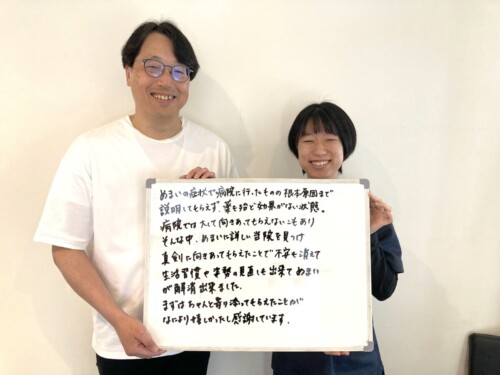 めまいの症状で病院に行ったものの根本原因まで
説明してもらえず、薬も殆ど効果がない状態。
病院では大して向きあってもらえないこともあり
そんな中、めまいに詳しい当院を見つけ
真剣に向きあってもらえたことで不安も消えて
生活習慣や姿勢の見直しも出来てめまい
が解消出来ました。
まずはちゃんと寄り添ってもらえたことが
なにより嬉しかったし感謝しています。